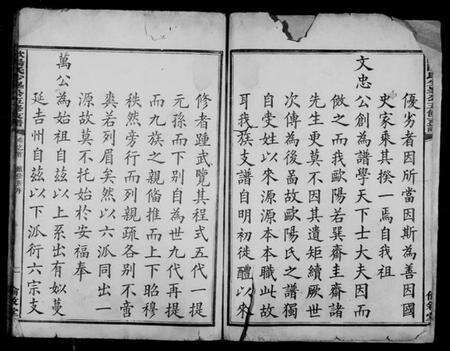 優劣者因所當因斯為善因國
史家乘其揆一焉自我祖
文忠公創為譜學天下士大夫因而
做之而我歐陽若巽齋圭齋諸
先生更莫不因其遺矩續厥世
次傳為後啚故歐陽氏之譜獨
自受姓以來源源本本職此故
耳我族支譜自明初徙醴以來
修者踵武覽其程式五代一提
元孫而下別自為世九代再提
而九族之親倫推而上下昭穆
秩然旁行而列親疏各別不啻
爽若列眉矣然以六派同出一
源故莫不托始於安福奉
萬公為始祖自茲以上系出有如蔓
延吉州自茲以下派衍六宗支